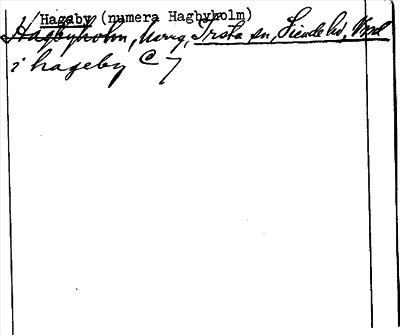 1/ Hagaby (numera Hagbyholm)
Hagbyholm, herrg, Irsta sn, Siende hd, Vml
i hageby C 7